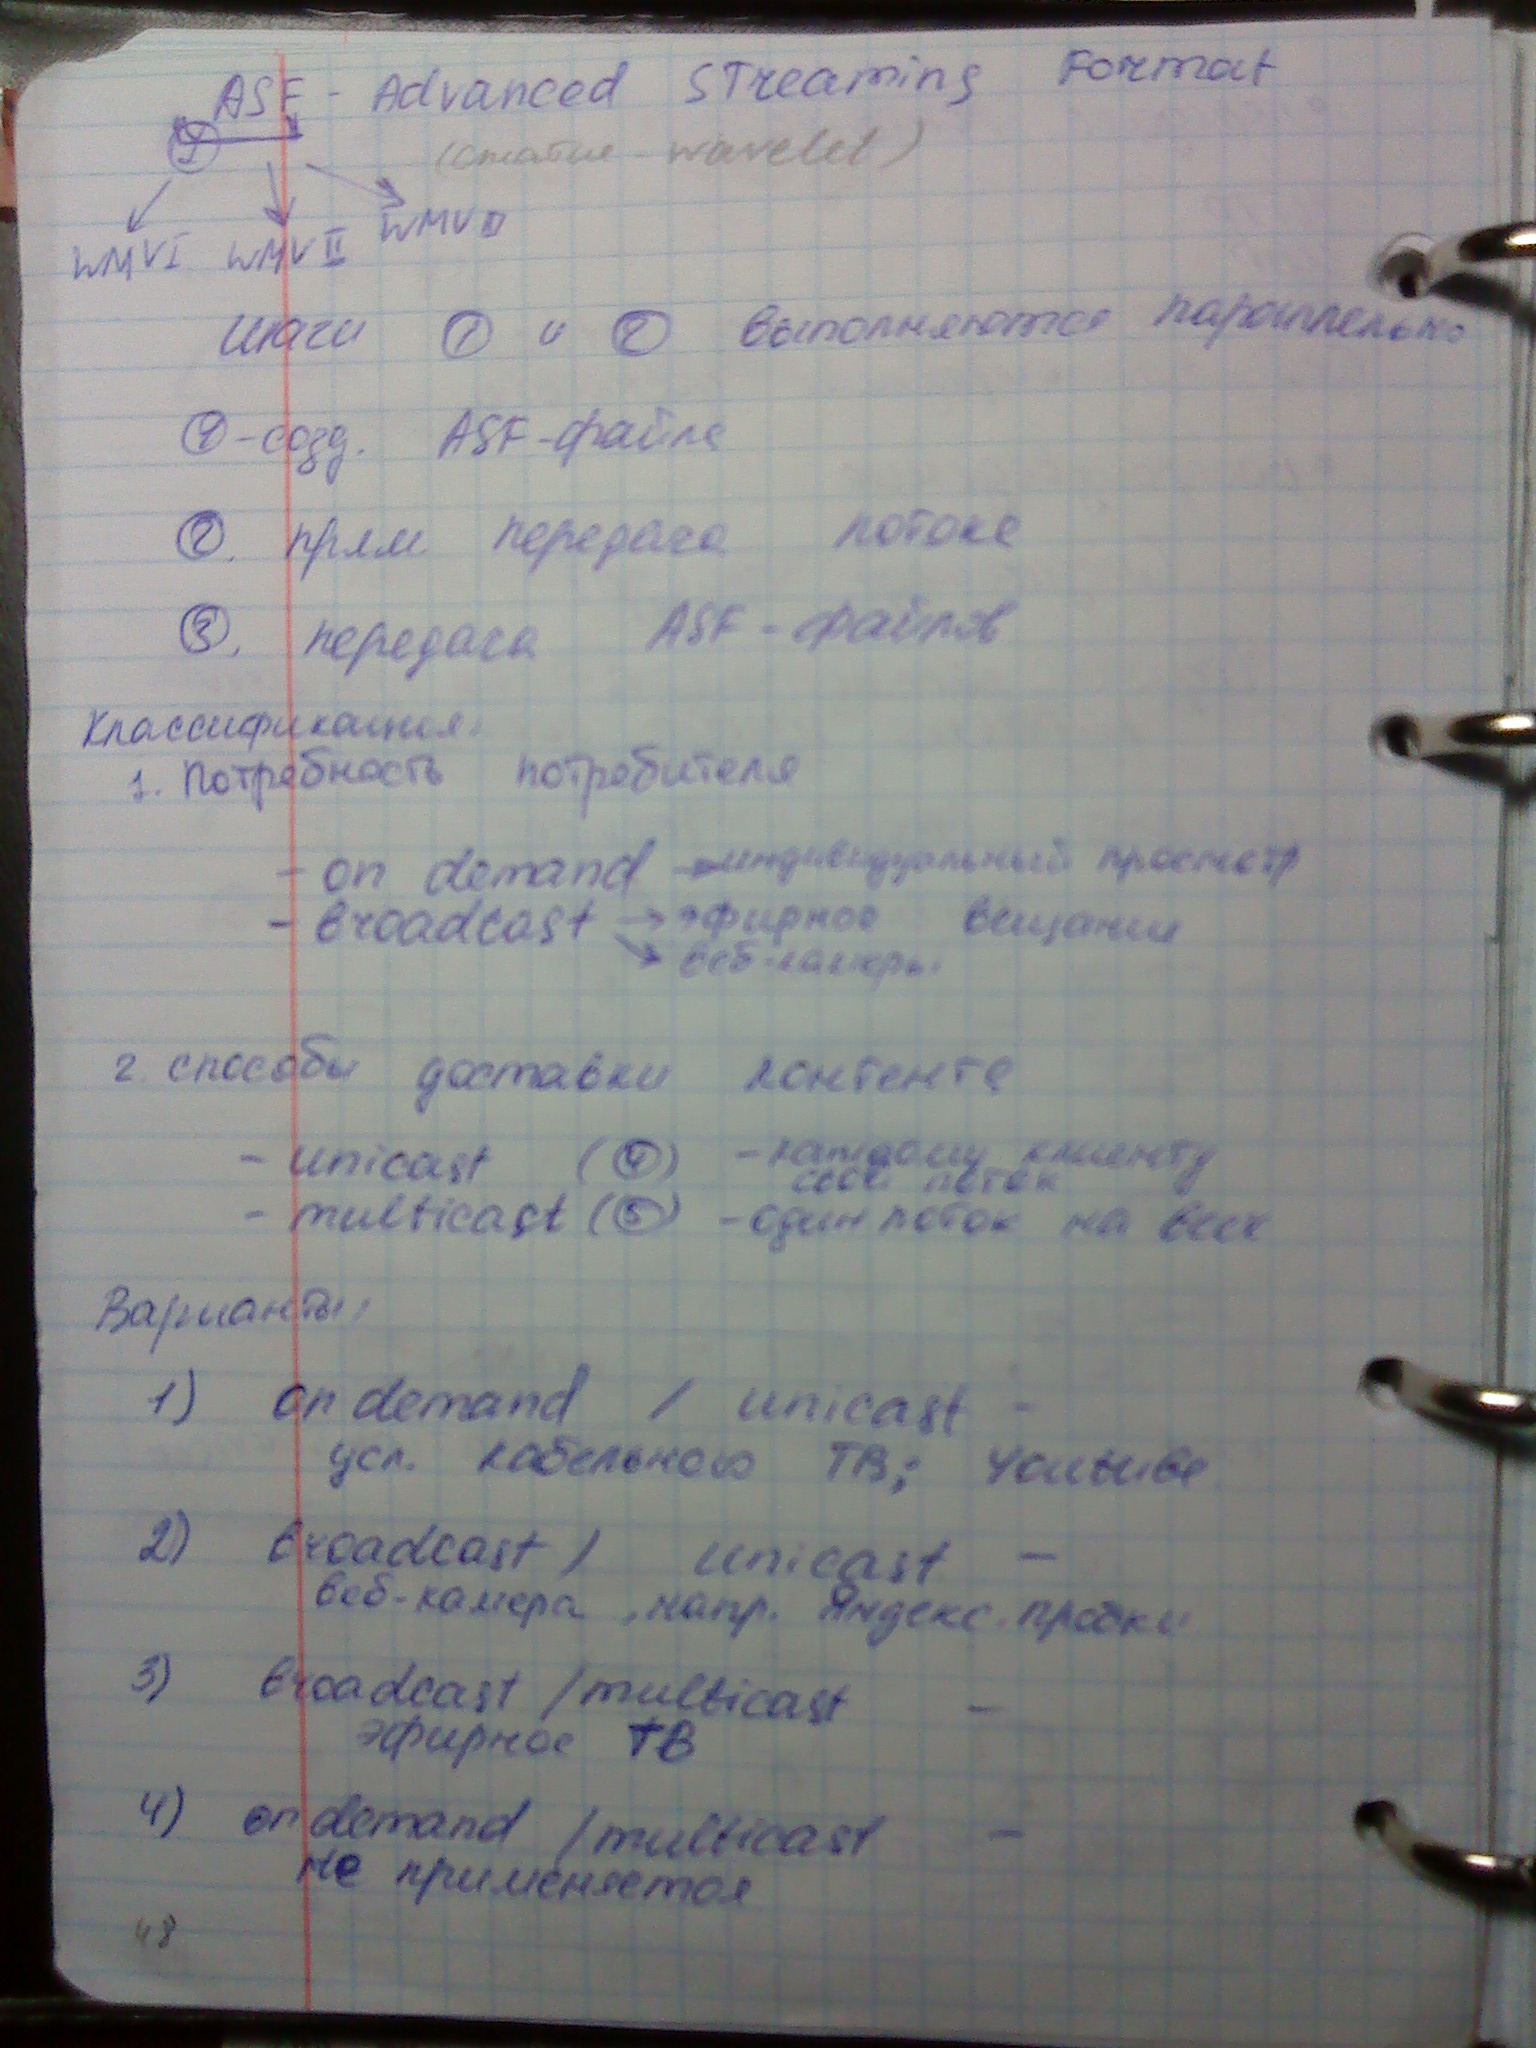 ASF - Advanced Streaming Format
(сжатие - wavelet)
WMV I WMV II WMV III
Шаги ① и ② выполняются параллельно
①-созд. ASF-файла
②. прям. передача потока
③. передача ASF-файлов
Классификация:
1. Потребность потребителя
- on demand → индивидуальный просмотр
- broadcast → эфирное вещание
→ веб-камеры.
2. способы доставки контента
- unicast (④) - каждому клиенту
свой поток
- multicast (⑤) - один поток на всех
Варианты:
1) on demand / unicast -
усл. кабельного ТВ; Youtube
2) broadcast / unicast -
веб-камера, напр. Яндекс.пробки
3) broadcast / multicast -
эфирное ТВ
4) on demand / multicast -
не применяется
48